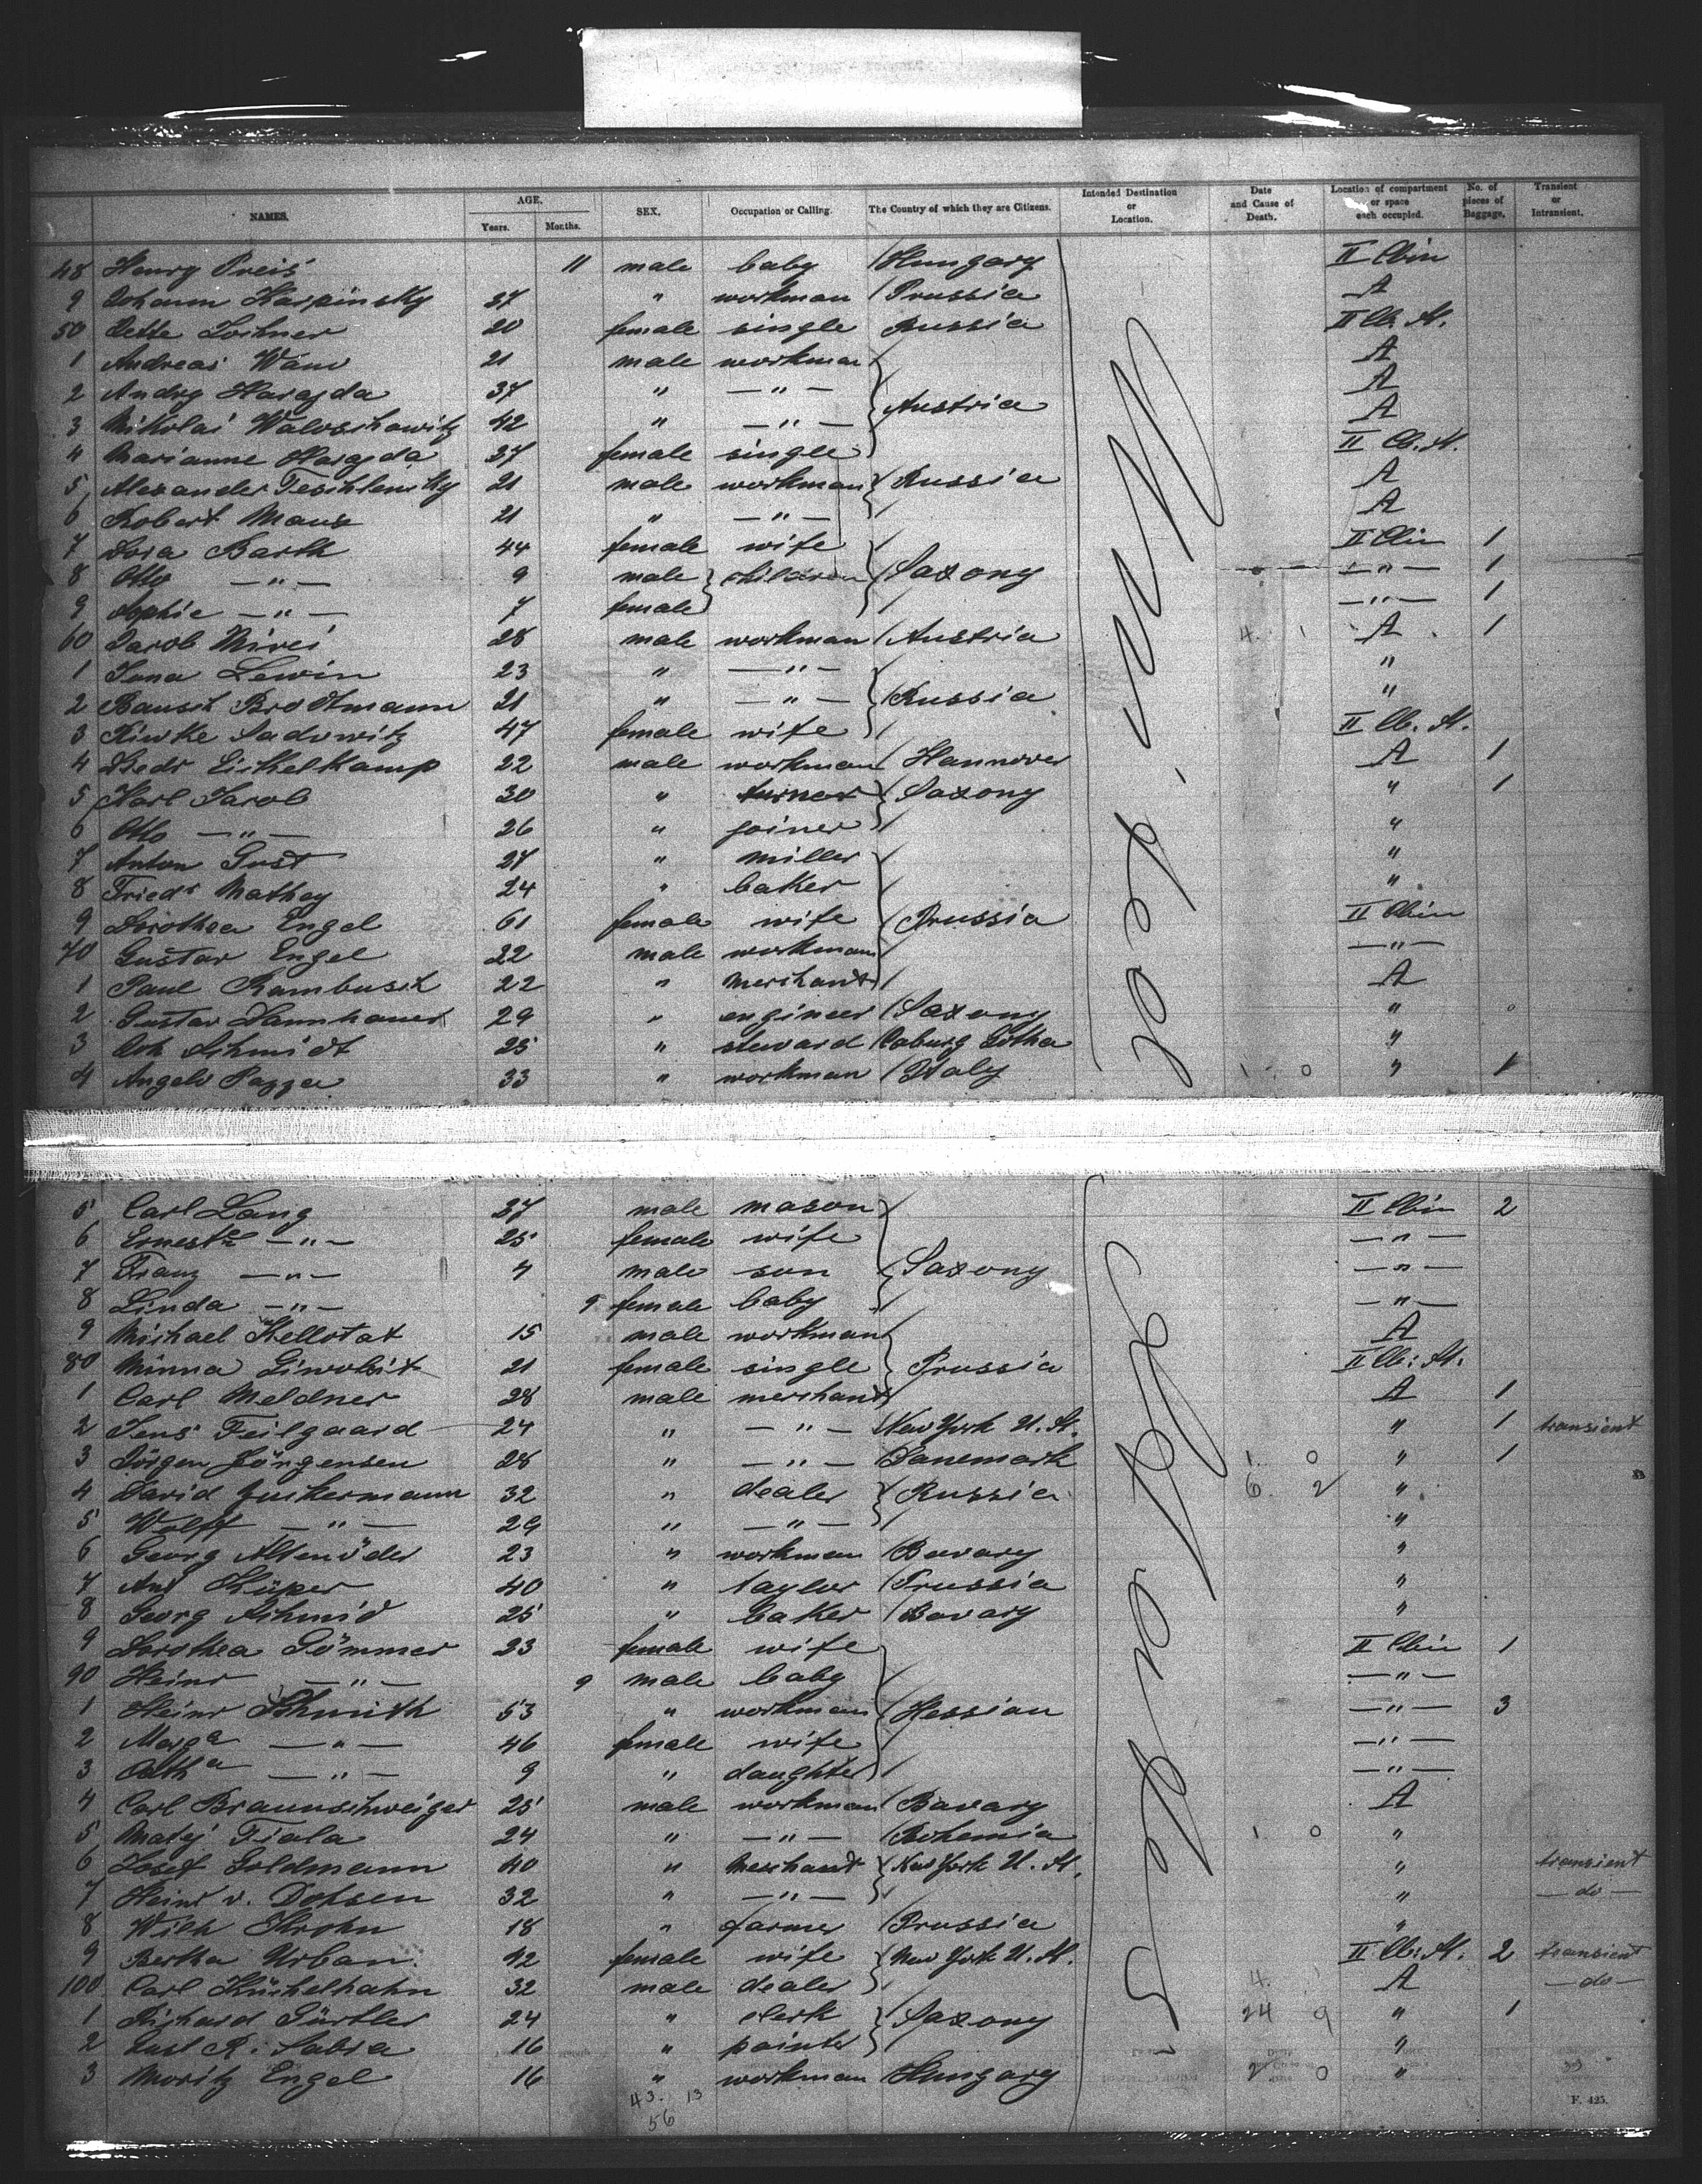 NAMES. AGE. Years. Months. SEX. Occupation or Calling. The Country of which they are Citizens. Intended Destination or Location. Date and Cause of Death. Location of compartment or space each occupied. No. of pieces of Baggage. Transient or Intransient.
48 Henry Preis 11 male baby Hungary II Cbin
9 Johann Karpinsky 37 " workman Prussia A
50 Lochner 20 female single Russia II Cb. St.
1 Andreas 21 male workman A
2 Andry Haragda 37 " — " — Austria A
3 Nikolai Waloschowitz 42 " — " — A
4 Marianne Haragda 27 female single II Cb. St.
5 Alexander 21 male workman Russia A
6 Robert Maus 21 " — " — A
7 Dora Barth 44 female wife II Cbin 1
8 Otto — " — 9 male children Saxony — " — 1
9 Sophie — " — 7 female — " — 1
60 Jacob 28 male workman Austria 4. 1 A 1
1 Lewin 23 " — " — "
2 Brodtmann 21 " — " — Russia "
3 Riwke Sadowitz 47 female wife II Cb. St.
4 Diedr Eickelkamp 22 male workman Hannover A 1
5 Karl Jacob 30 " turner Saxony " 1
6 Otto — " — 26 " joiner "
7 Anton Gust 27 " miller "
8 Friedr Mathey 24 " baker "
9 Dorothea Engel 61 female wife Prussia II Cbin
70 Gustav Engel 22 male workman — " —
1 Paul Rambusch 22 " merchant A
2 Gustav Dannhauer 29 " engineer Saxony "
3 Joh Schmidt 25 " steward Coburg Gotha "
4 Angelo Pazza 33 " workman Italy 1 0 " 1
New York
5 Carl Lang 37 male mason II Cbin 2
6 Ernestne — " — 25 female wife — " —
7 Franz — " — 4 male son Saxony — " —
8 Linda — " — 9 female baby — " —
9 Michael Kellotat 15 male workman A
80 Minna 21 female single Prussia II Cb: St.
1 Carl Meldner 28 male merchant A 1
2 Jens Feilgaard 24 " — " — New York U. St. " 1 transient
3 Jörgen Jörgensen 28 " — " — Danemark 1. 0 " 1
4 David Zuckermann 32 " dealer Russia 6. 2 "
5 Wolff — " — 29 " — " — "
6 Georg Altenöder 23 " workman Bavary "
7 Ant Küper 40 " taylor Prussia "
8 Georg Schmid 25 " baker Bavary "
9 Dorothea Gömmer 23 female wife II Cbin 1
90 Heinr — " — 9 male baby — " —
1 Heinr Schmith 53 " workman Hessian — " — 3
2 Marga — " — 46 female wife — " —
3 Catha — " — 9 " daughter — " —
4 Carl Braunschweiger 25 male workman Bavary A
5 Matej Fiala 24 " — " — Bohemia 1 0 "
6 Josef Goldmann 40 " Merchant New York U. St. " transient
7 Heinr v. Dohsen 32 " — " — " — do —
8 Wilh Krohn 18 " farmer Prussia "
9 Bertha Urban 42 female wife New York U. St. II Cb: St. 2 transient
100 Carl Küchelhahn 32 male dealer 4. A — do —
1 Richard Gürtler 24 " clerk Saxony 24 9 " 1
2 R. 16 " painter "
3 Moritz Engel 16 " workman Hungary 2 0 "
43. 13
56
F. 425.